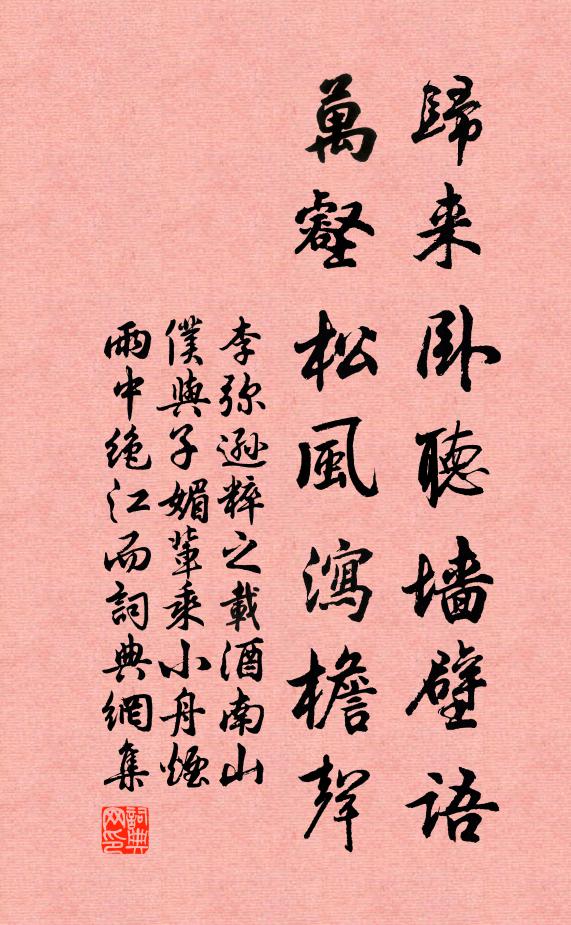 歸来卧聽墙壁語
萬壑松風瀉檐聲
李弥遜粹之載酒南山
僕與子媚輩乘小舟煙
雨中绝江而詞典網集
詞典网印